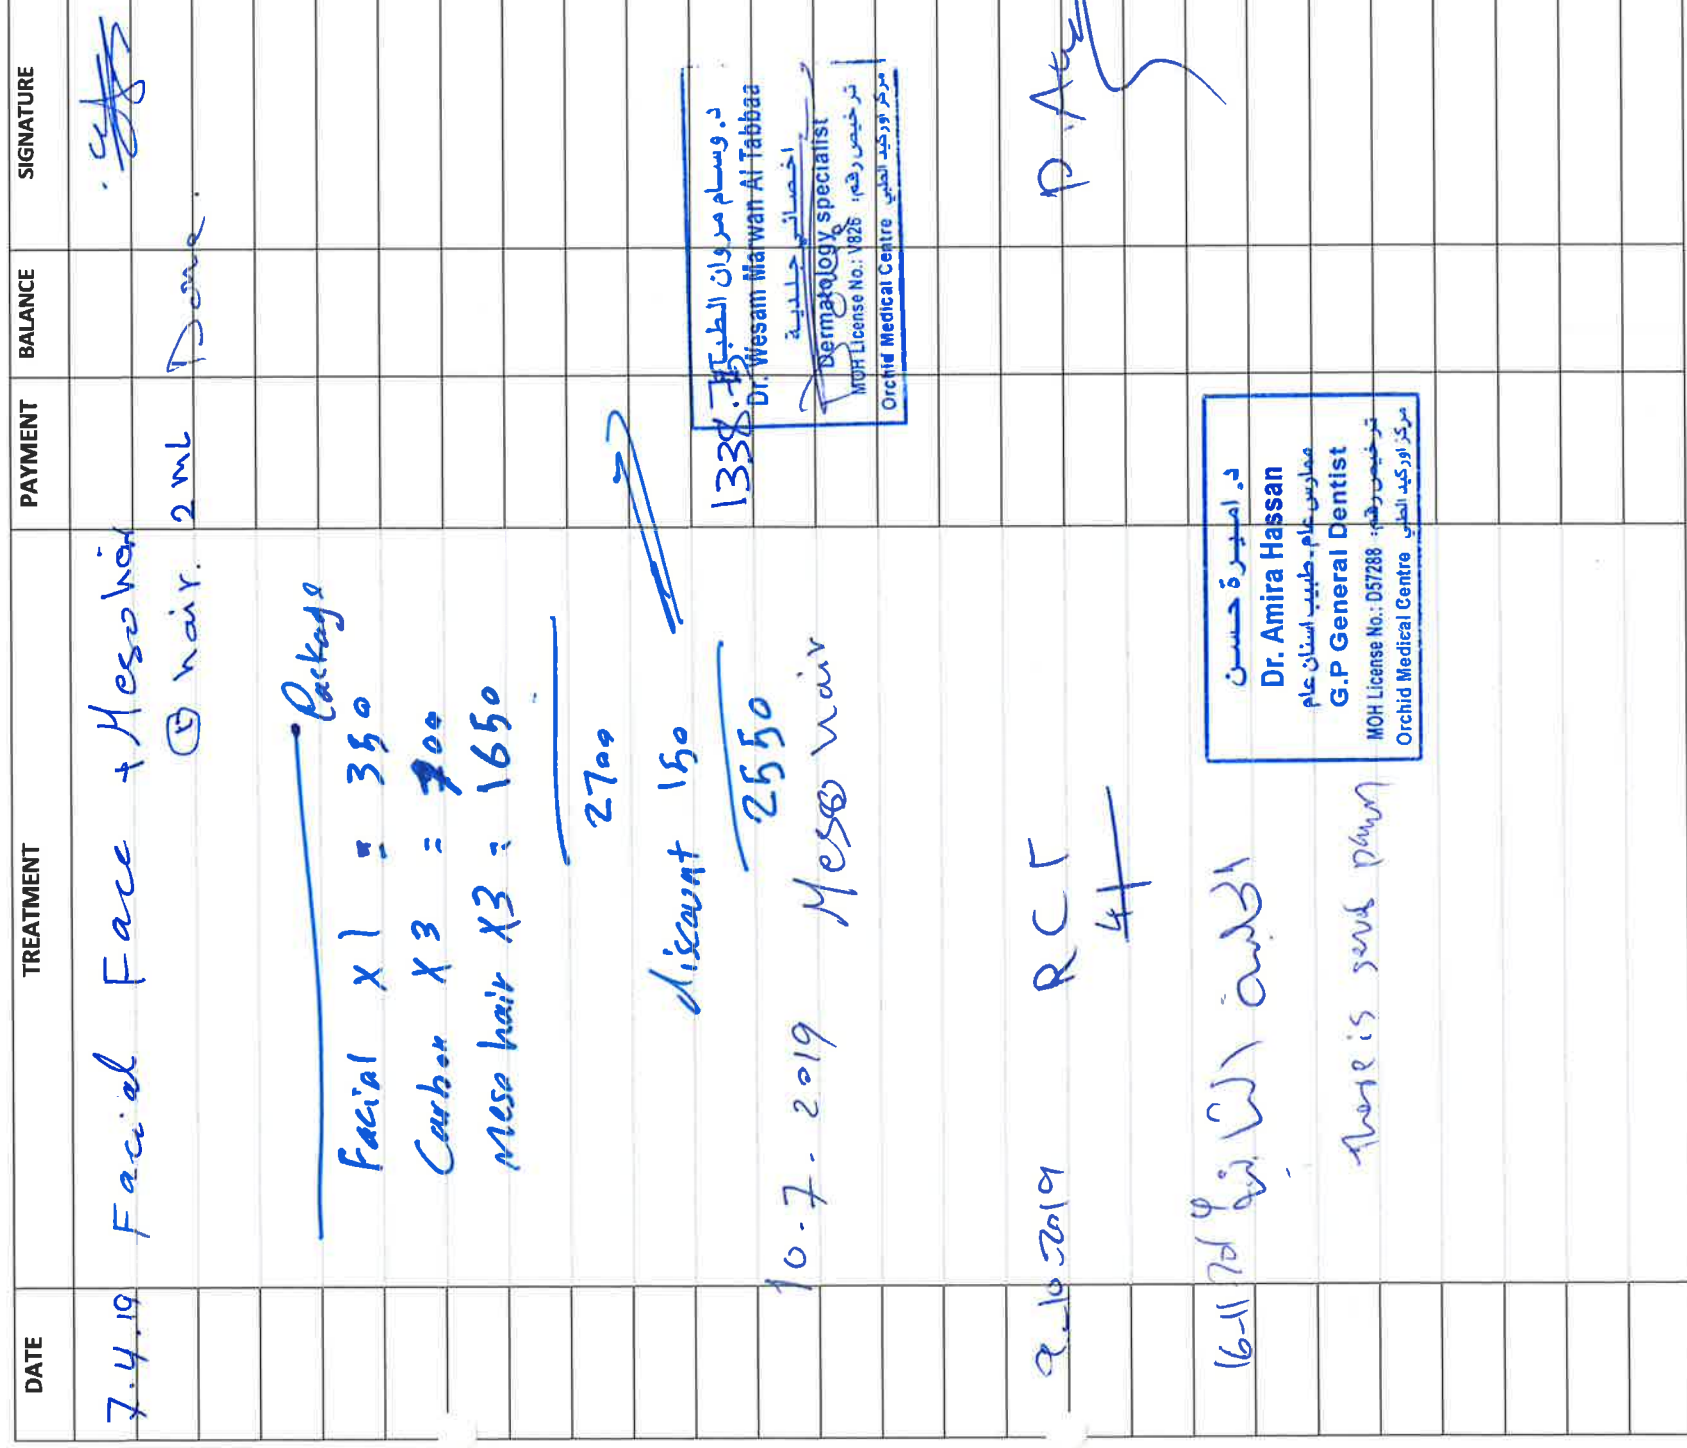 DATE TREATMENT PAYMENT BALANCE SIGNATURE
7.4.19 Facial Face + Mesolion
hair. 2 mL Done.
Package
Facial x 1 = 350
Carbon x 3 = 700
Meso hair x3 = 1650
2700
discount 150
2550
1338.75
10.7.2019 Meso hair
د. وسام مروان الطباع
Dr. Wesam Marwan Al Tabbaa
اخصائي جلدية
Dermatology specialist
MOH License No.: V826 ترخيص رقم:
Orchid Medical Centre مركز اوركيد الطبي
9-10-2019 RCT D.
4
16-11
There is
د. اميرة حسن
Dr. Amira Hassan
ممارس عام - طبيب اسنان عام
G.P General Dentist
MOH License No.: D57288 ترخيص رقم:
Orchid Medical Centre مركز اوركيد الطبي